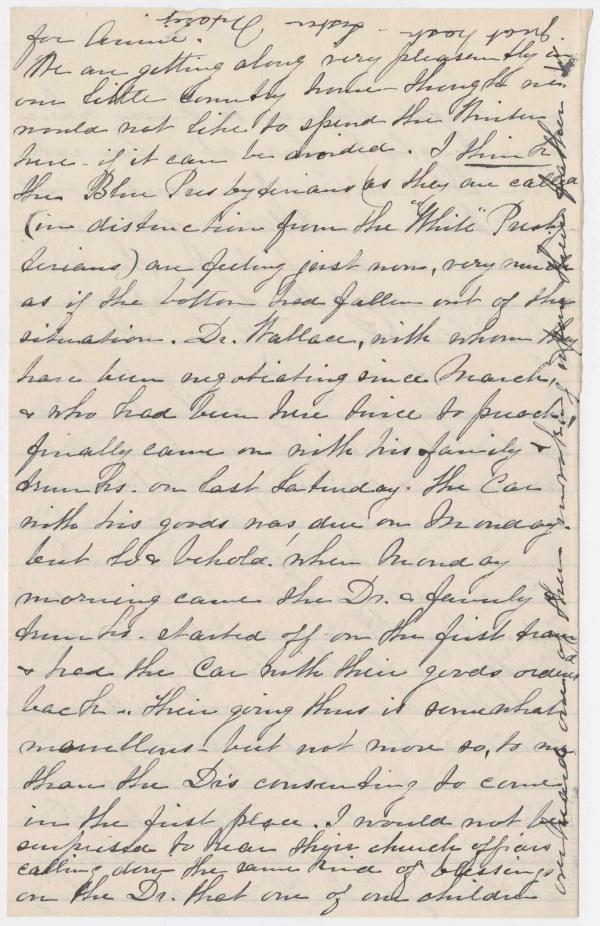 for Annie.
We are getting along very pleasantly in
our little country home - though we
would not like to spend the Winter
here - if it can be avoided. I think
the Blue Presbyterians (as they are called
(in distinction from the "White" Presby-
terians) are feeling just now, very much
as if the bottom had fallen out of the
situation. Dr. Wallace, with whom they
have been negotiating since March,
& who had been here twice to preach
finally came on with his family &
trunks. on last Saturday. The Car
with his goods was due on Monday
but lo & behold! when Monday
morning came the Dr. & family &
trunks. started off on the first train
& had the Car with their goods ordered
back. Their going thus is somewhat
marvellous - but not more so, to me
than the Drs consenting to come
in the first place. I would not be
surprised to hear their church officers
calling down the same kind of blessings
on the Dr. that one of our children
overheard one of them invoking upon their father